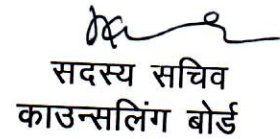 सदस्य सचिव
काउन्सलिंग बोर्ड